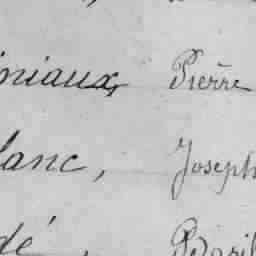 niaux, Pierre
lanc, Joseph
dé, Basil